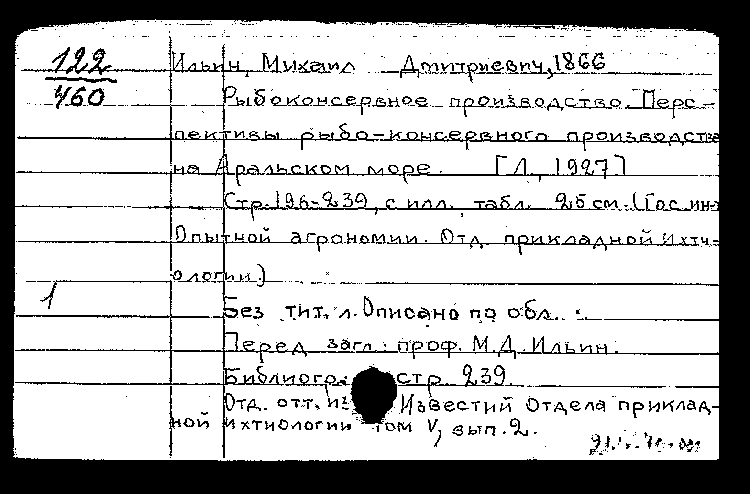 122
460
Ильин, Михаил Дмитриевич, 1866
Рыбоконсервное производство. Перс-
пективы рыбо-консервного производства
на Аральском море. [Л., 1927]
Стр. 196-239, с илл., табл. 25 см. (Гос. ин-т
Опытной агрономии. Отд. прикладной ихти-
ологии.)
1
Без тит. л. Описано по обл.
Перед загл.: проф. М.Д. Ильин.
Библиогр. стр 239.
Отд. отт. из Известий Отдела приклад-
ной ихтиологии том V, вып. 2.